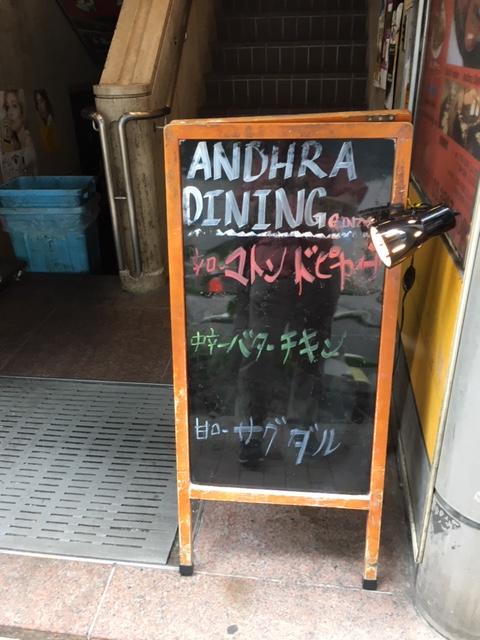 ANDHRA
DINING
辛口-マトンドピヤーザ
中辛-バターチキン
甘口-サグダル